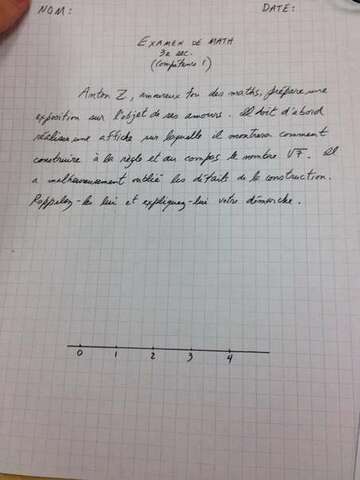 NOM: DATE:
EXAMEN DE MATH
3e sec.
(compétence 1)
Anton Z, amoureux fou des maths, prépare une
exposition sur l'objet de ses amours. Il doit d'abord
réaliser une affiche sur laquelle il montrera comment
construire à la règle et au compas le nombre √7. Il
a malheureusement oublié les détails de la construction.
Rappelez-les lui et expliquez-lui votre démarche.
0 1 2 3 4